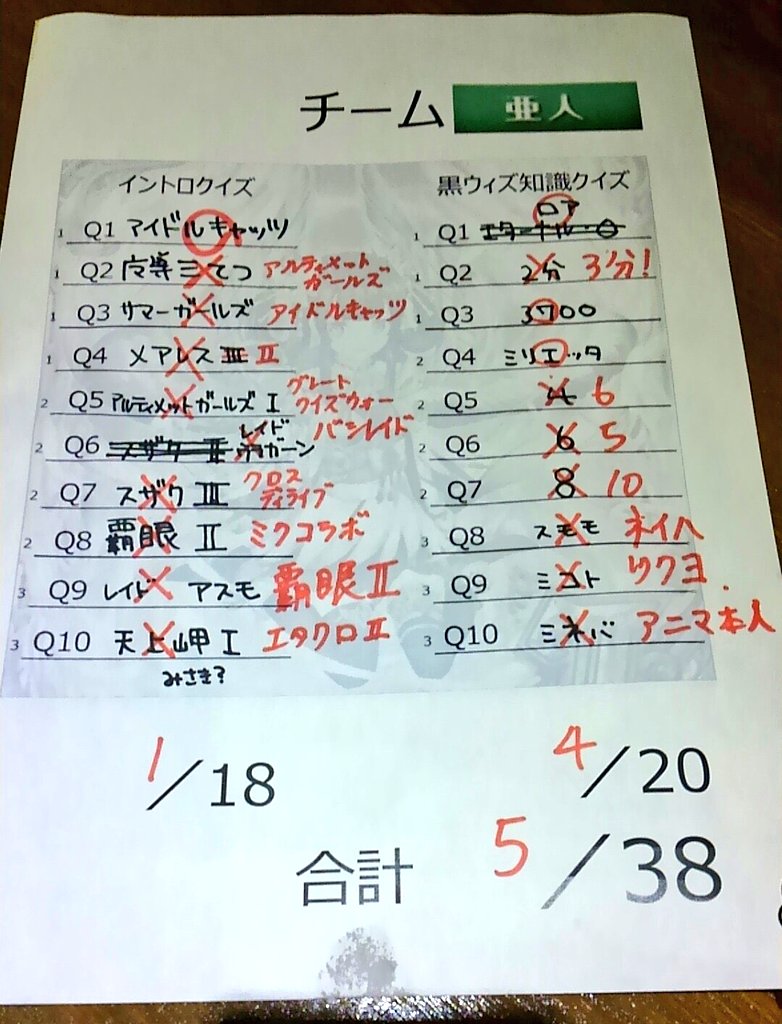 チーム 亜人
イントロクイズ
1 Q1 アイドルキャッツ
1 Q2 魔導三てつ アルティメットガールズ
1 Q3 サマーガールズ アイドルキャッツ
1 Q4 メアレス III II
2 Q5 アルティメットガールズ I グレートクイズウォー
2 Q6 スザク II レイド ガーン バシレイド
2 Q7 スザク III クロスディライブ
2 Q8 覇眼 II ミクコラボ
3 Q9 レイド アスモ 覇眼 II
3 Q10 天上岬 I エタクロ II
みさき?
1/18
黒ウィズ知識クイズ
1 Q1 エターナル・ ロア
1 Q2 2分 3分!
1 Q3 3700
2 Q4 ミリエッタ
2 Q5 4 6
2 Q6 6 5
2 Q7 8 10
3 Q8 スモモ ネイハ
3 Q9 ミコト ツクヨ
3 Q10 ミネバ アニマ本人
4/20
合計 5/38